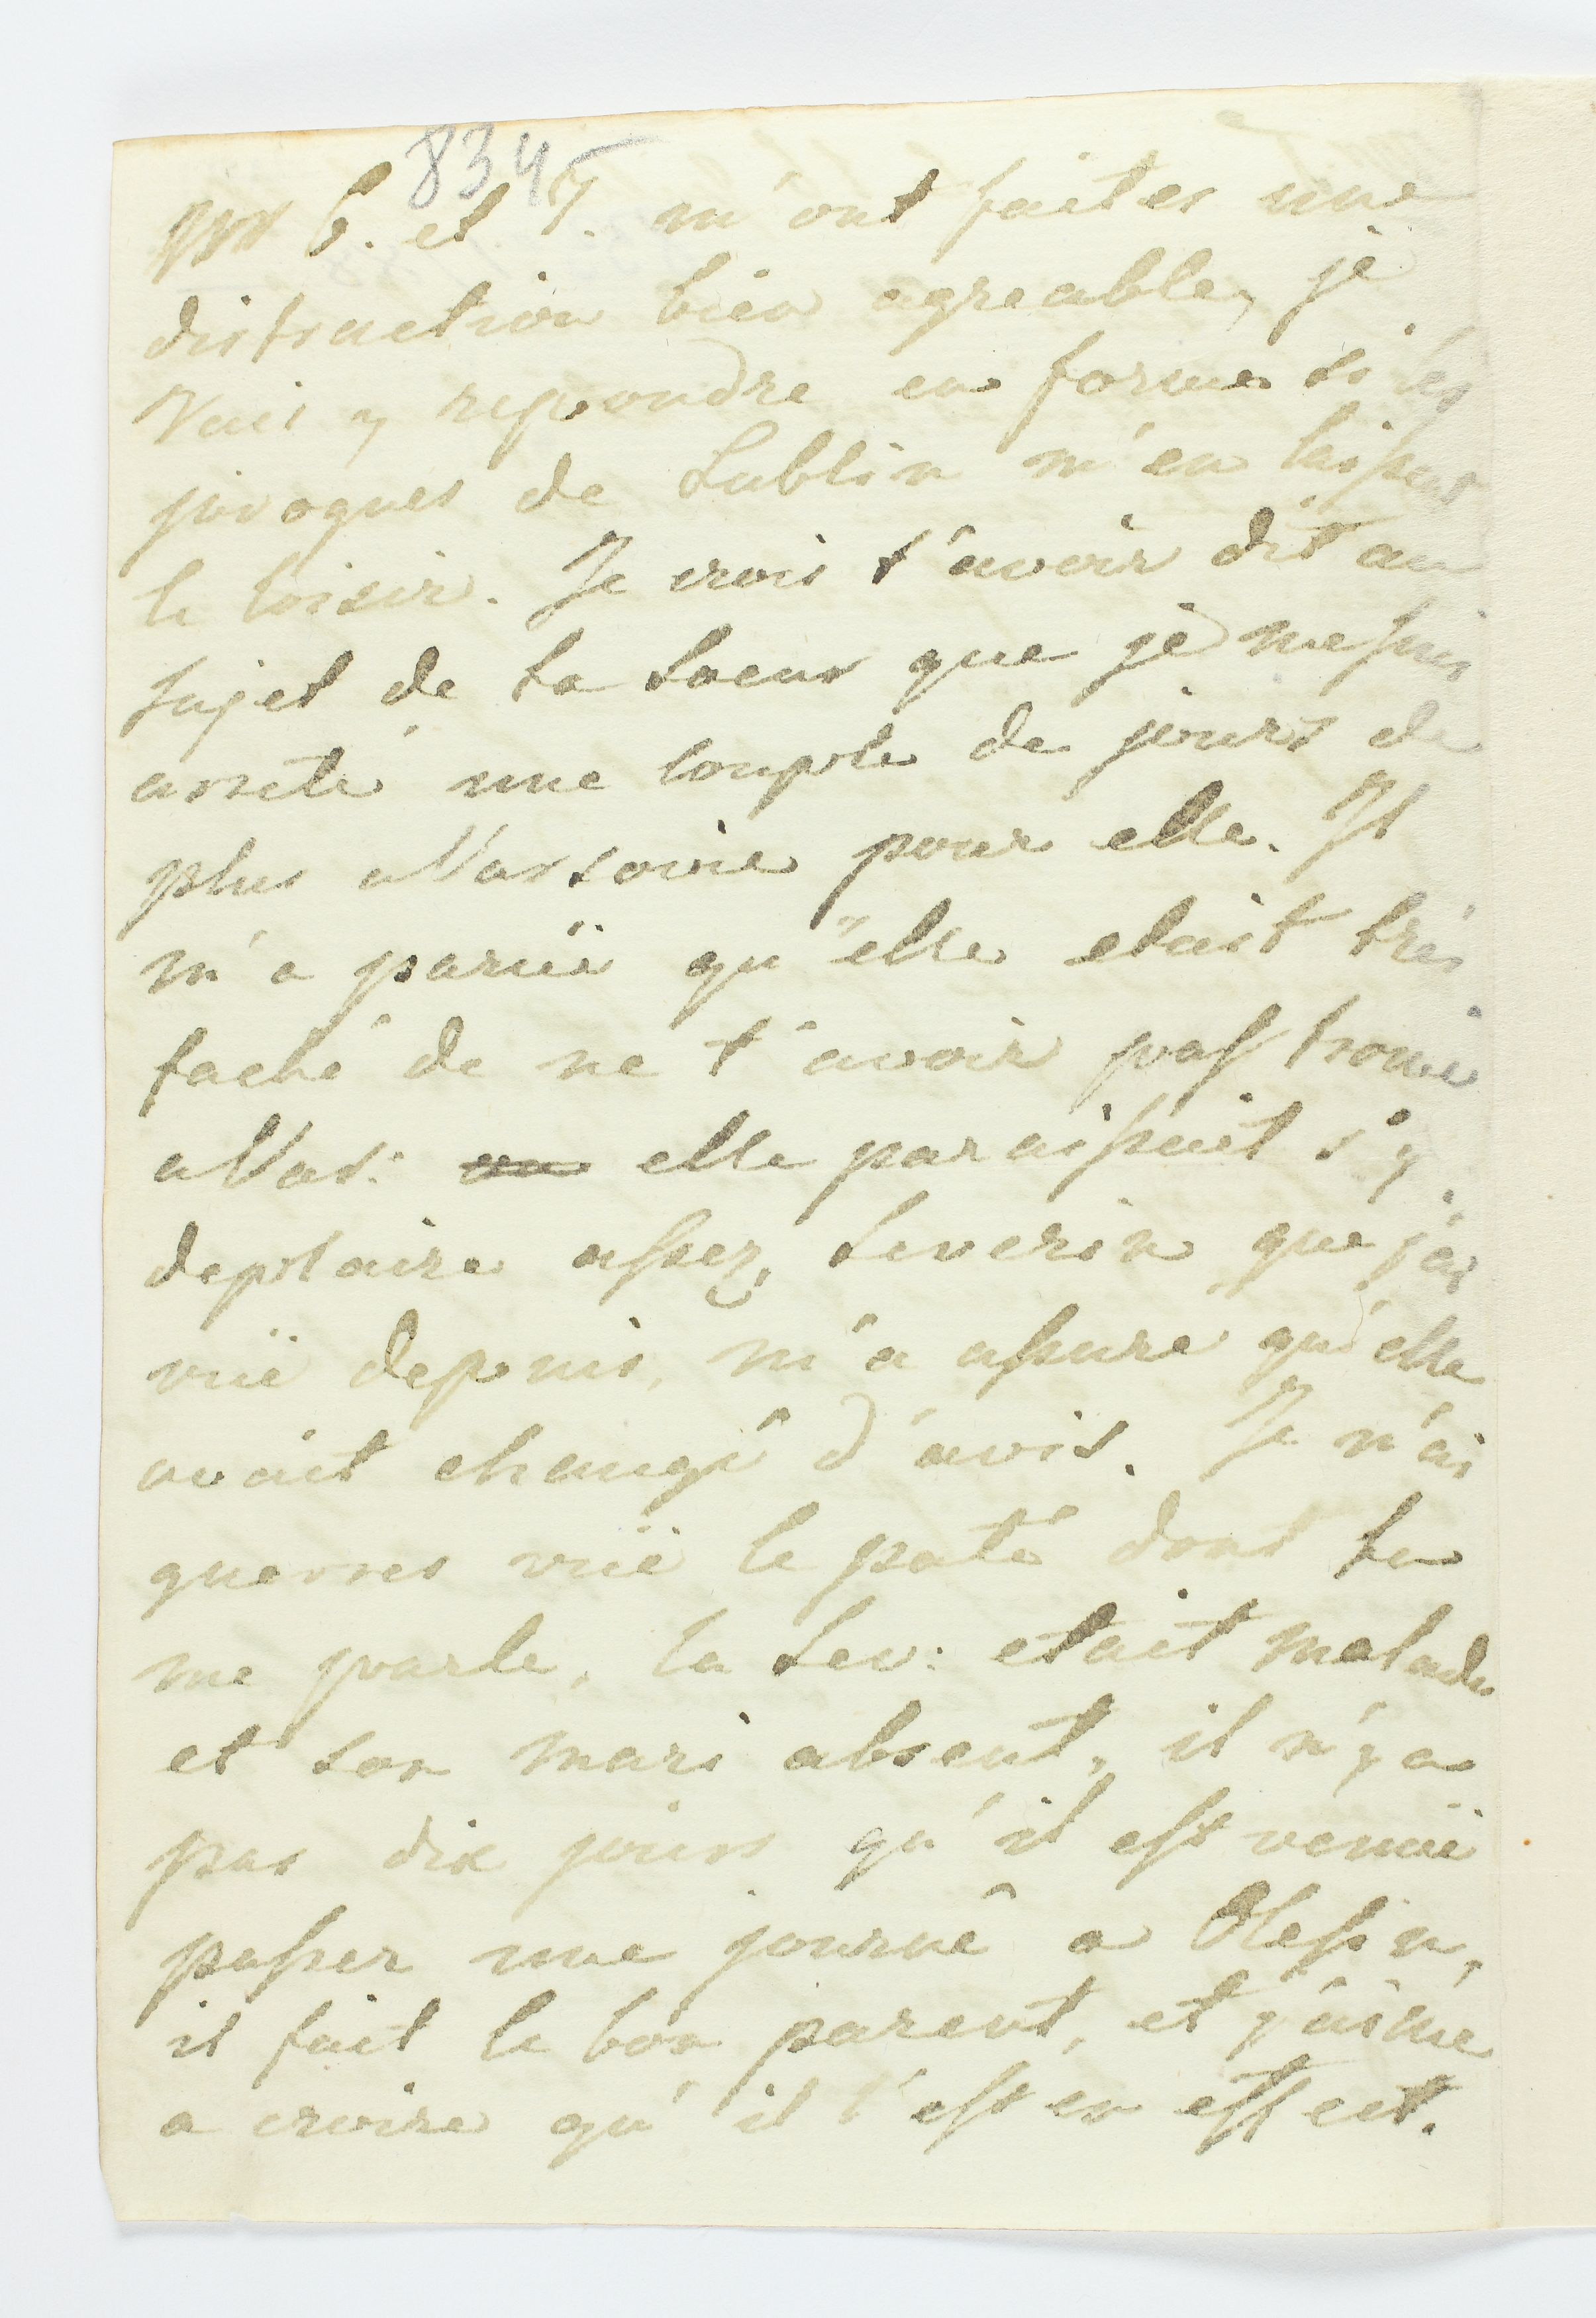 8345
№ 6. et 7. m'ont faites une
distraction bien agreable, je
vais y repondre en forme si les
ivrognes de Lublin m'en laissent
le loisir. Je crois t'avoir dit au
sujet de ta soeur que je me suis
arreté une couple de jours de
plus a Varsovie pour elle. Il
m'a paruë qu'elle etait très
faché de ne t'avoir pas trouvé
a Vars: elle paraissait s'y
deplaire assez, Severin que j'ai
vuë depuis, m'a assuré qu'elle
avait changé d'avis. Je n'ai
guerres vuë le paté dont tu
me parle, la Sev: etait malade
et son mari absent, il n'y a
pas dix jours qu'il est venuë
passer une journé a Olesin,
il fait le bon parent, et j'aime
a croire qu'il l'est en effect.